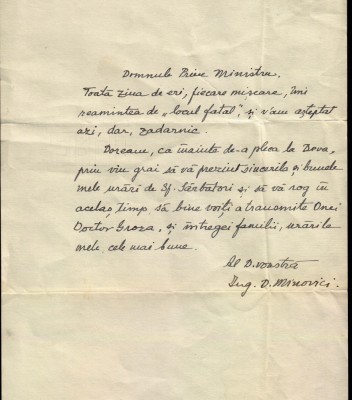 Domnule Prim Ministru.
Toată ziua de eri, fiecare mișcare, îmi
reamintea de „locul fatal", și v'am așteptat
azi, dar, zadarnic.
Doream, ca înainte de-a pleca la Deva,
prin viu grai să vă prezint sincerile și bunele
mele urări de Sf. Sărbători și să vă rog în
acelaș timp, să bine voiți a transmite Dnei
Doctor Groza, și întregei familii, urările
mele cele mai bune.
Al D.voastră
Ing. D. Minovici.